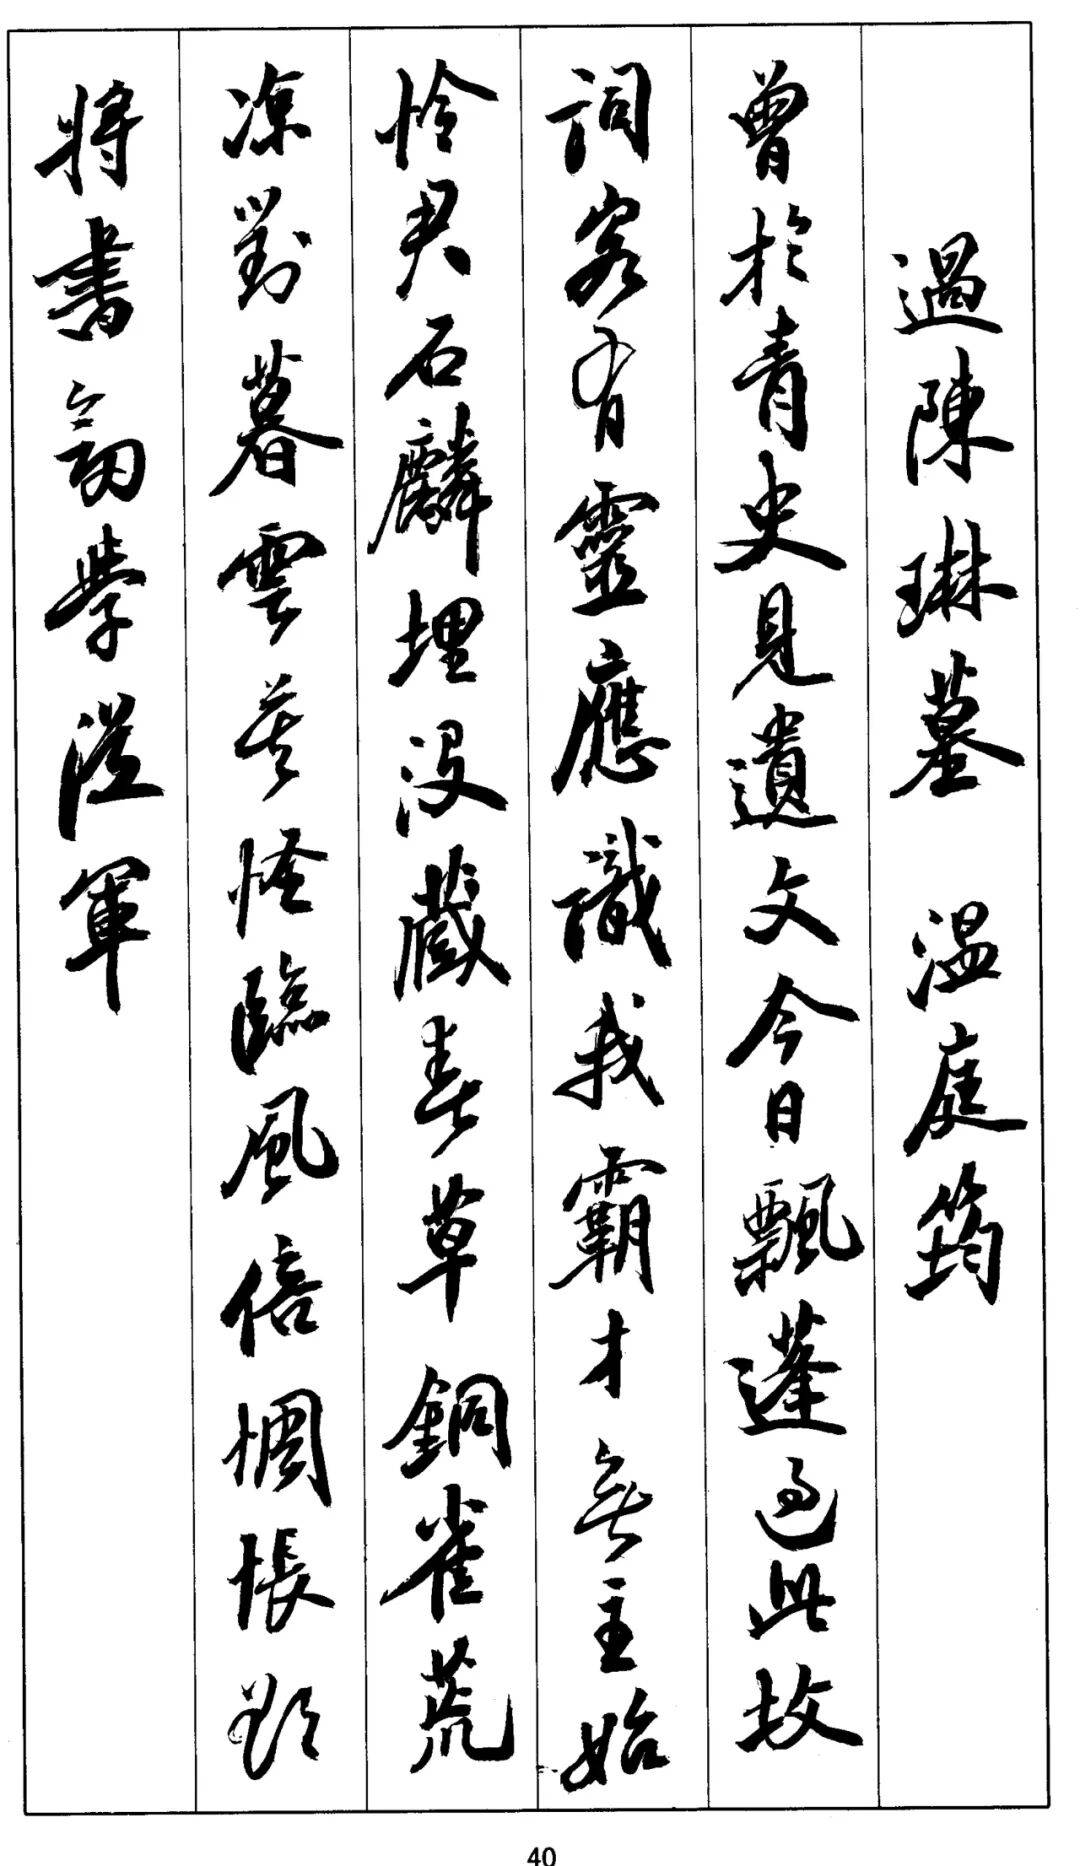 過陳琳墓 温庭筠
曾於青史見遺文今日飄蓬過此坆
詞客有靈應識我霸才無主始
怜君石麟埋没藏春草銅雀荒
凉對暮雲莫怪臨風倍惆悵欲
将書劍學從軍
40